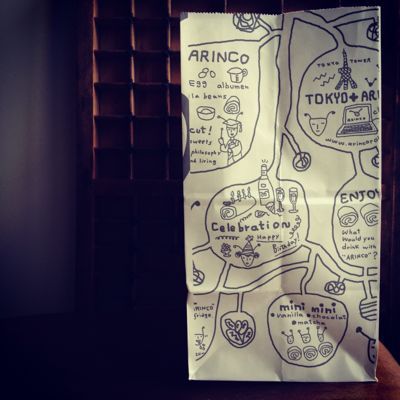 ARINCO
Egg albumen
la beans
cut!
sweets
philosophy
and living
TOKYO TOWER
TOKYO+ARI
ARINCO
www.arincoro
Celebration
Happy
Birthday!
ENJOY
What
would you
drink with
"ARINCO"?
ARINCO
fridge
mini mini
vanilla chocolat
matcha